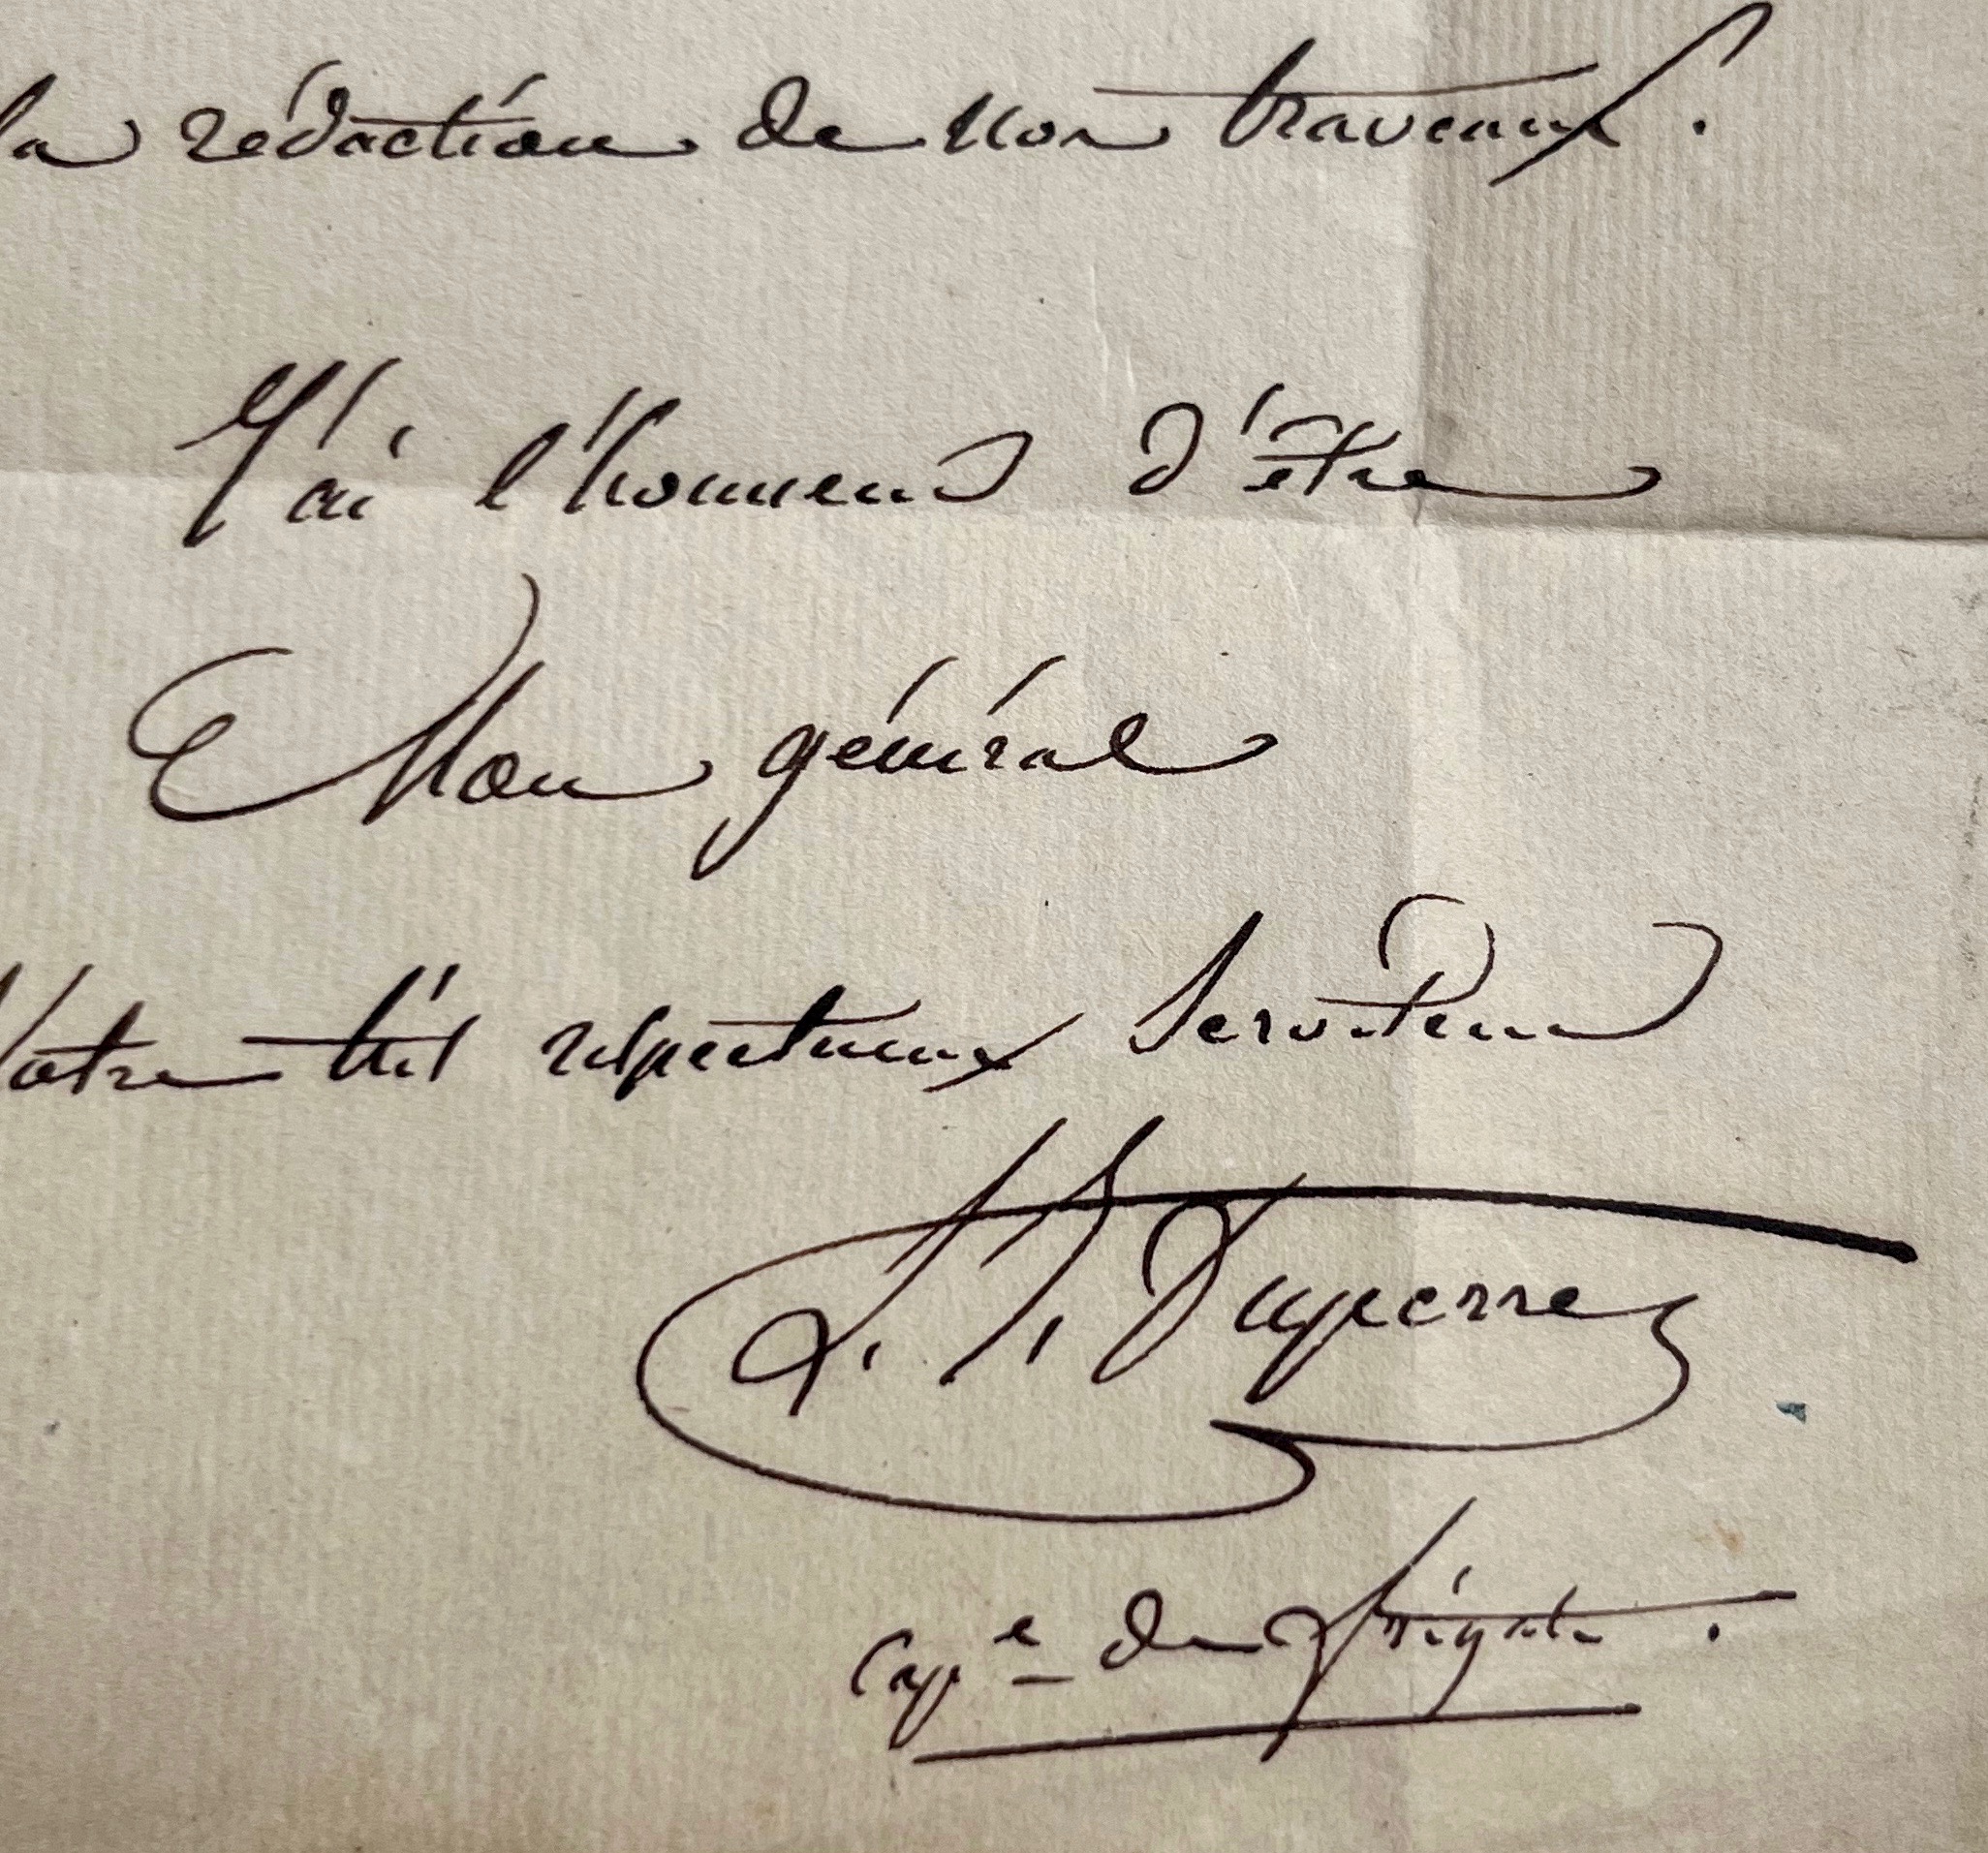 la rédaction de nos travaux.
J'ai l'honneur d'être
Mon général
Votre très respectueux Serviteur
L. I. Duperrey
Cap.e de frégate.